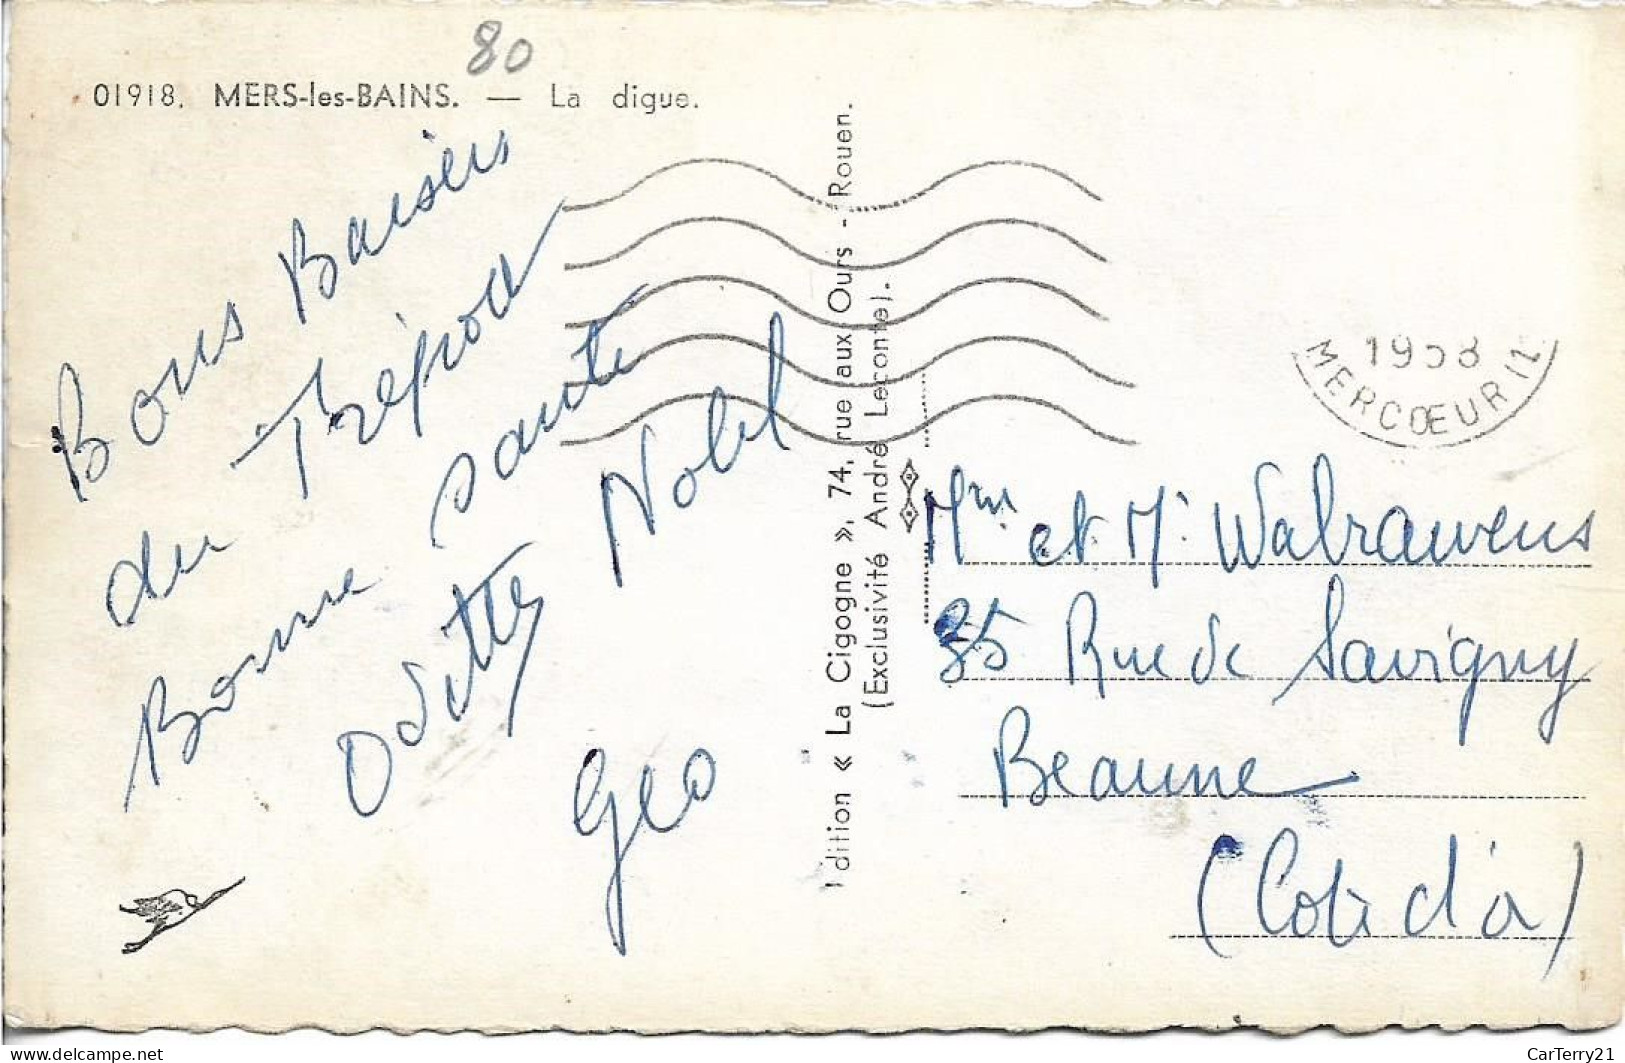 80
01918. MERS-les-BAINS. — La digue.
Bons Baisers
du Tréport
Bonne santé
Odette Nobel
Geo
Edition « La Cigogne », 74, rue aux Ours - Rouen.
(Exclusivité André Leconte).
1958
MERCŒUR
Mme et Mr Walrawens
35 Rue de Savigny
Beaune
(Cote d'or)
CarTerry21